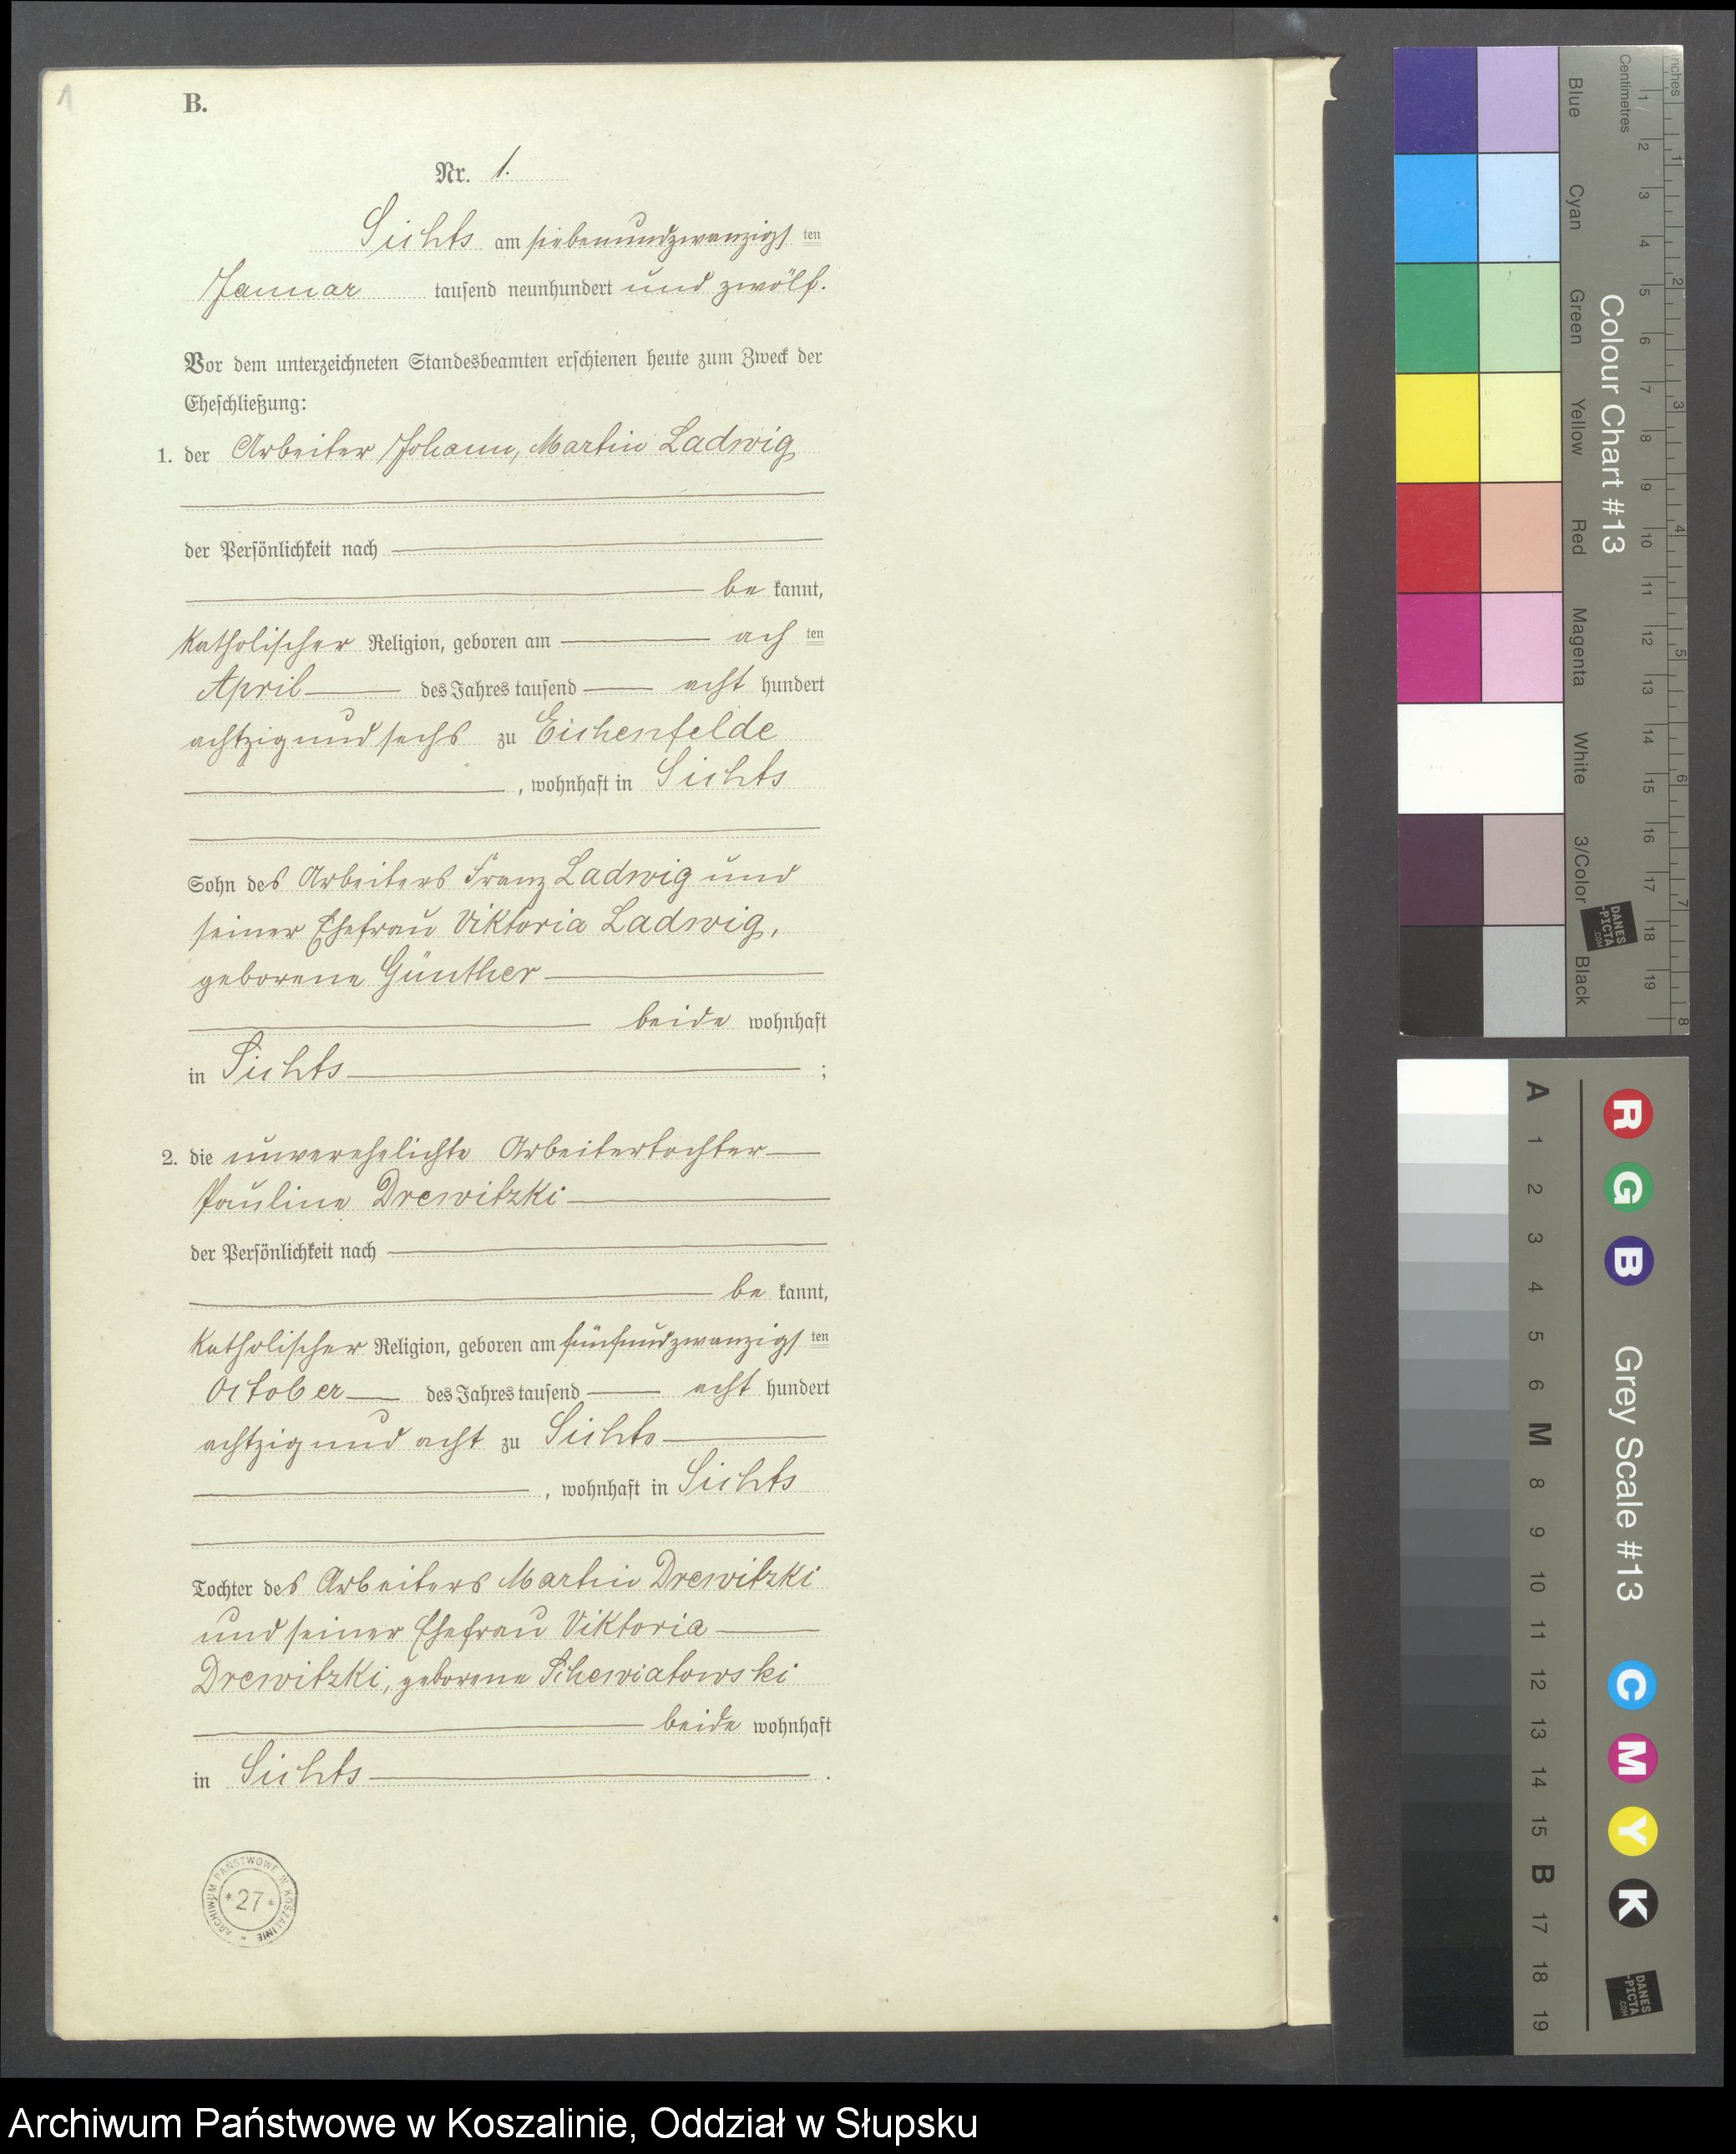 1
B.
Nr. 1.
Sichts am siebenundzwanzigs ten
Januar tausend neunhundert und zwölf.
Vor dem unterzeichneten Standesbeamten erschienen heute zum Zweck der
Eheschließung:
1. der Arbeiter Johann, Martin Ladwig
der Persönlichkeit nach
be kannt,
katholischer Religion, geboren am ach ten
April des Jahres tausend acht hundert
achtzig und sechs zu Eichenfelde
, wohnhaft in Sichts
Sohn des Arbeiters Franz Ladwig und
seiner Ehefrau Viktoria Ladwig,
geborene Günther
beide wohnhaft
in Sichts ;
2. die unverehelichte Arbeitertochter
Pauline Drewitzki
der Persönlichkeit nach
be kannt,
katholischer Religion, geboren am fünfundzwanzigs ten
October des Jahres tausend acht hundert
achtzig und acht zu Sichts
, wohnhaft in Sichts
Tochter des Arbeiters Martin Drewitzki
und seiner Ehefrau Viktoria
Drewitzki, geborene Schewiatowski
beide wohnhaft
in Sichts .
ARCHIWUM PAŃSTWOWE W KOSZALINIE
* 27 *
Inches 1 2 3 4 5 6 7 8
Centimetres 1 2 3 4 5 6 7 8 9 10 11 12 13 14 15 16 17 18 19
Colour Chart #13
Blue Cyan Green Yellow Red Magenta White 3/Color Black
DANES
-PICTA
.COM
R G B
Grey Scale #13
C M Y K
A 1 2 3 4 5 6 M 8 9 10 11 12 13 14 15 B 17 18 19
DANES
-PICTA
.COM
Archiwum Państwowe w Koszalinie, Oddział w Słupsku